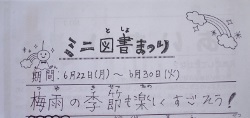 ミニ図書まつり
としょ
期間:6月22日(月)～6月30日(火)
梅雨の季節も楽しくすごそう!